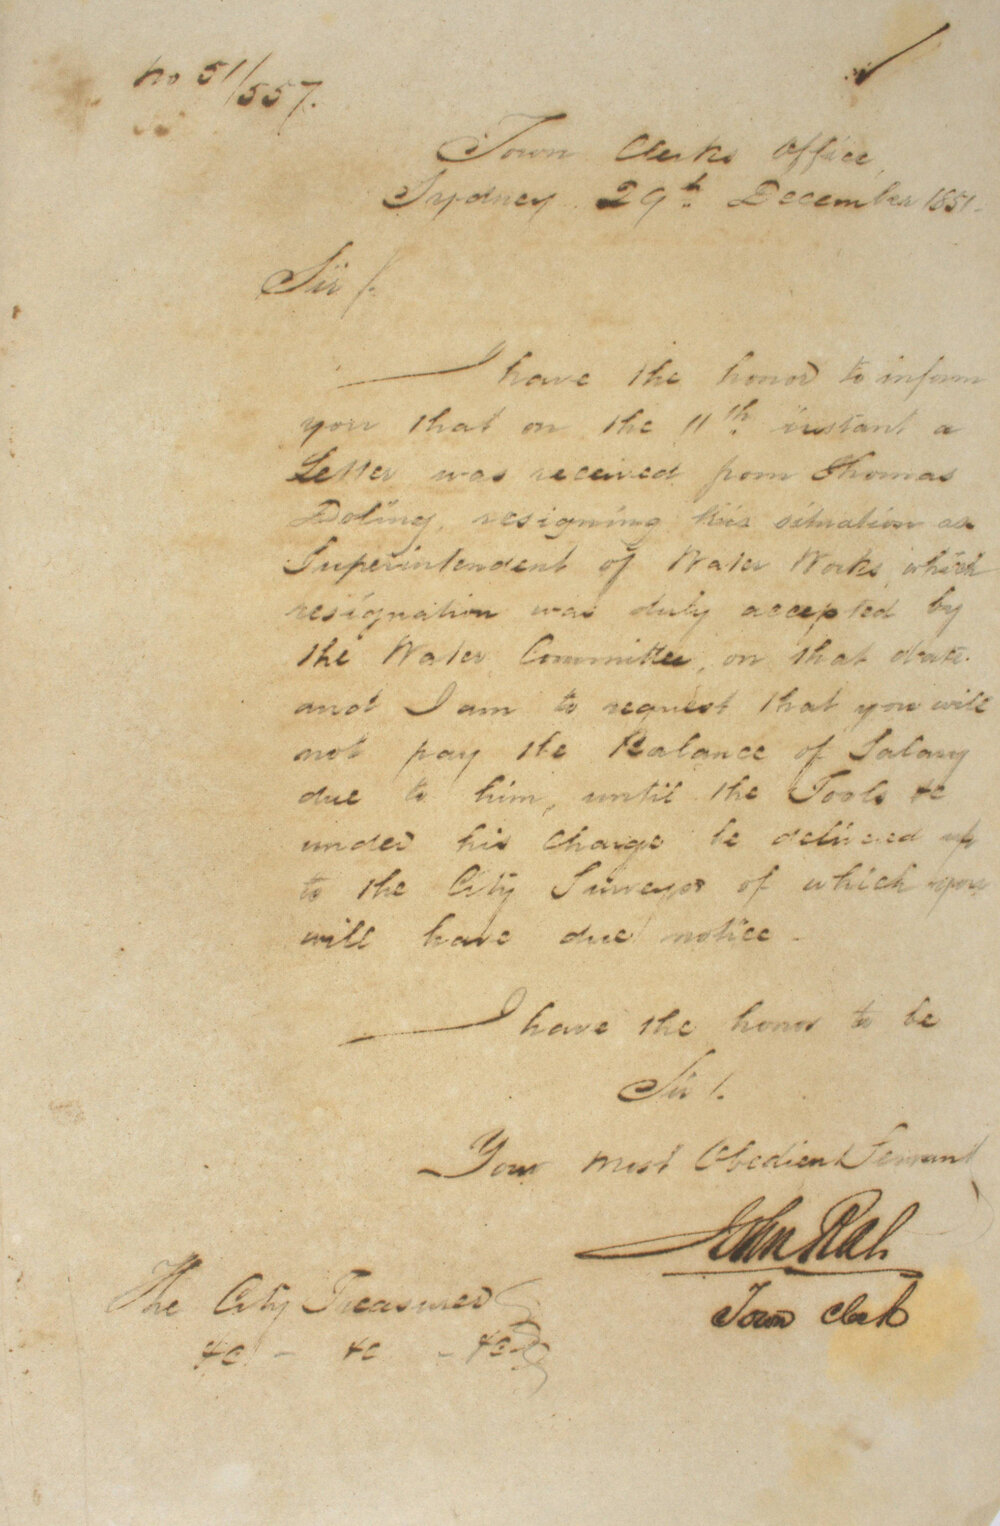 No 51/557.
Town Clerks Office,
Sydney 29th December 1851.
Sir /.
I have the honor to inform
you that on the 11th instant a
Letter was received from Thomas
Doling, resigning his situation as
Superintendent of Water Works, which
resignation was duly accepted by
the Water Committee, on that date.
and I am to request that you will
not pay the Balance of Salary
due to him, until the Tools &c
under his charge be delivered up
to the City Surveyor of which you
will have due notice.
I have the honor to be
Sir /.
Your most Obedient Servant
John Rae
Town Clerk
The City Treasurer
&c - &c - &c